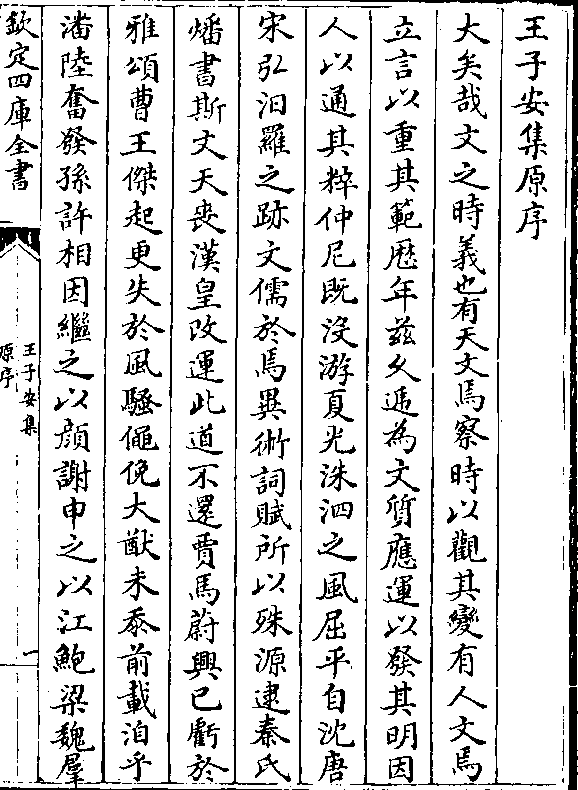 王子安集原序
大矣哉文之時義也有天文焉察時以觀其變有人文焉
立言以重其範歴年兹久遞為文質應運以發其明因
人以通其粹仲尼既沒游夏光洙泗之風屈平自沈唐
宋弘汨羅之跡文儒於焉異術詞賦所以殊源逮秦氏
燔書斯文天喪漢皇改運此道不還賈馬蔚興已虧於
雅頌曹王傑起更失於風騷僶俛大猷未忝前載洎乎
潘陸奮發孫許相因繼之以顔謝申之以江鮑梁魏羣
欽定四庫全書
王子安集
原序
一